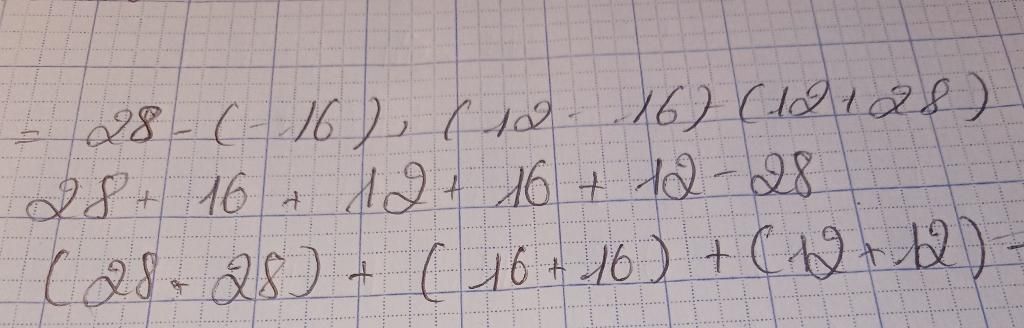 = 28 - (- 16) + (12 - 16) - (12 + 28)
28 + 16 + 12 + 16 + 12 - 28
(28 - 28) + (16 + 16) + (12 + 12) =